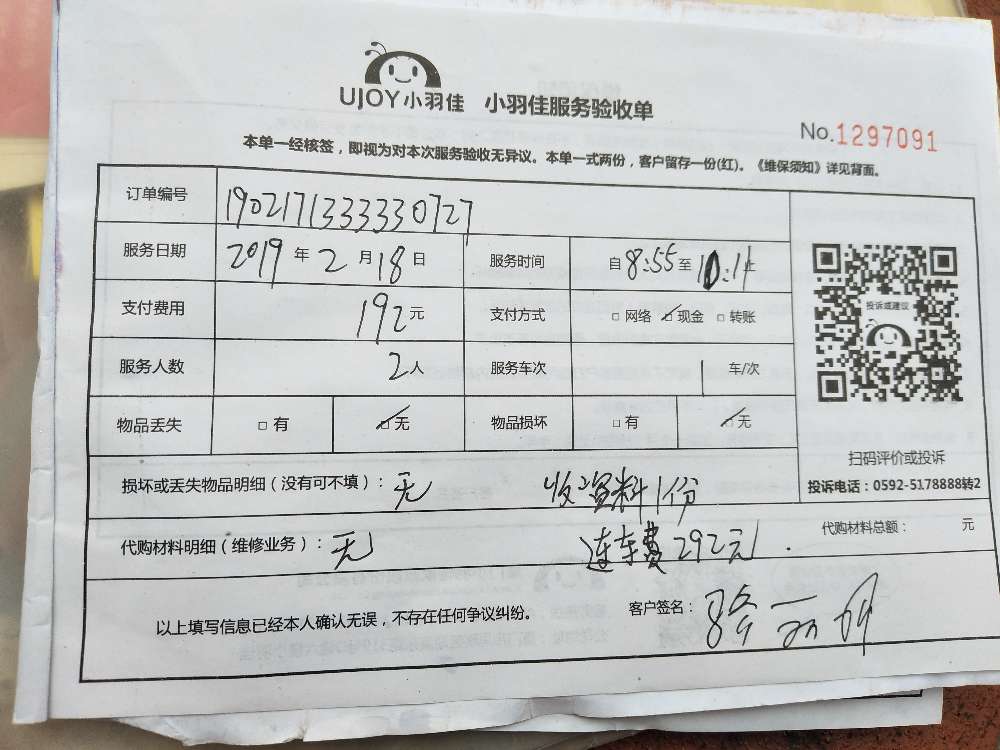 UJOY小羽佳 小羽佳服务验收单
No.1297091
本单一经核签，即视为对本次服务验收无异议。本单一式两份，客户留存一份(红)。《维保须知》详见背面。
订单编号 190217133330727
服务日期 2019年2月18日 服务时间 自8:55至
支付费用 192元 支付方式 □网络 □现金 □转账
服务人数 2人 服务车次 1车/次
物品丢失 □有 □无 物品损坏 □有 □无
投诉或建议
扫码评价或投诉
投诉电话：0592-5178888转2
损坏或丢失物品明细（没有可不填）：无 收资料1份
代购材料明细（维修业务）：无 连车费292元 代购材料总额： 元
以上填写信息已经本人确认无误，不存在任何争议纠纷。 客户签名：